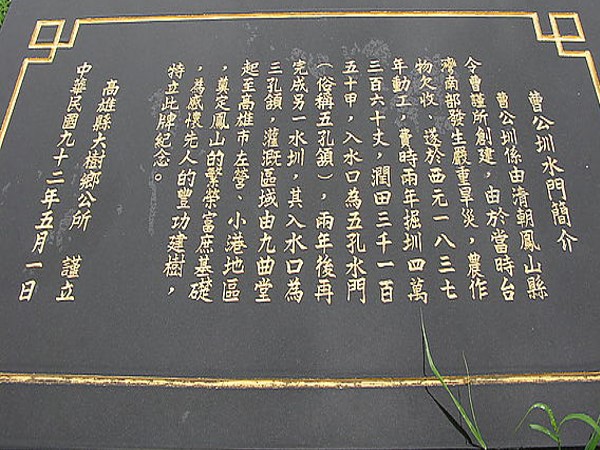 曹公圳水門簡介
曹公圳係由清朝鳳山縣
令曹謹所創建，由於當時台
灣南部發生嚴重旱災，農作
物欠收、遂於西元一八三七
年動工，費時兩年掘圳四萬
三百六十丈，潤田三千一百
五十甲，入水口為五孔水門
（俗稱五孔頷），兩年後再
完成另一水圳，其入水口為
三孔頷，灌溉區域由九曲堂
起至高雄市左營、小港地區
，奠定鳳山的繁榮富庶基礎
，為感懷先人的豐功建樹，
特立此牌紀念。
高雄縣大樹鄉公所　謹立
中華民國九十二年五月一日